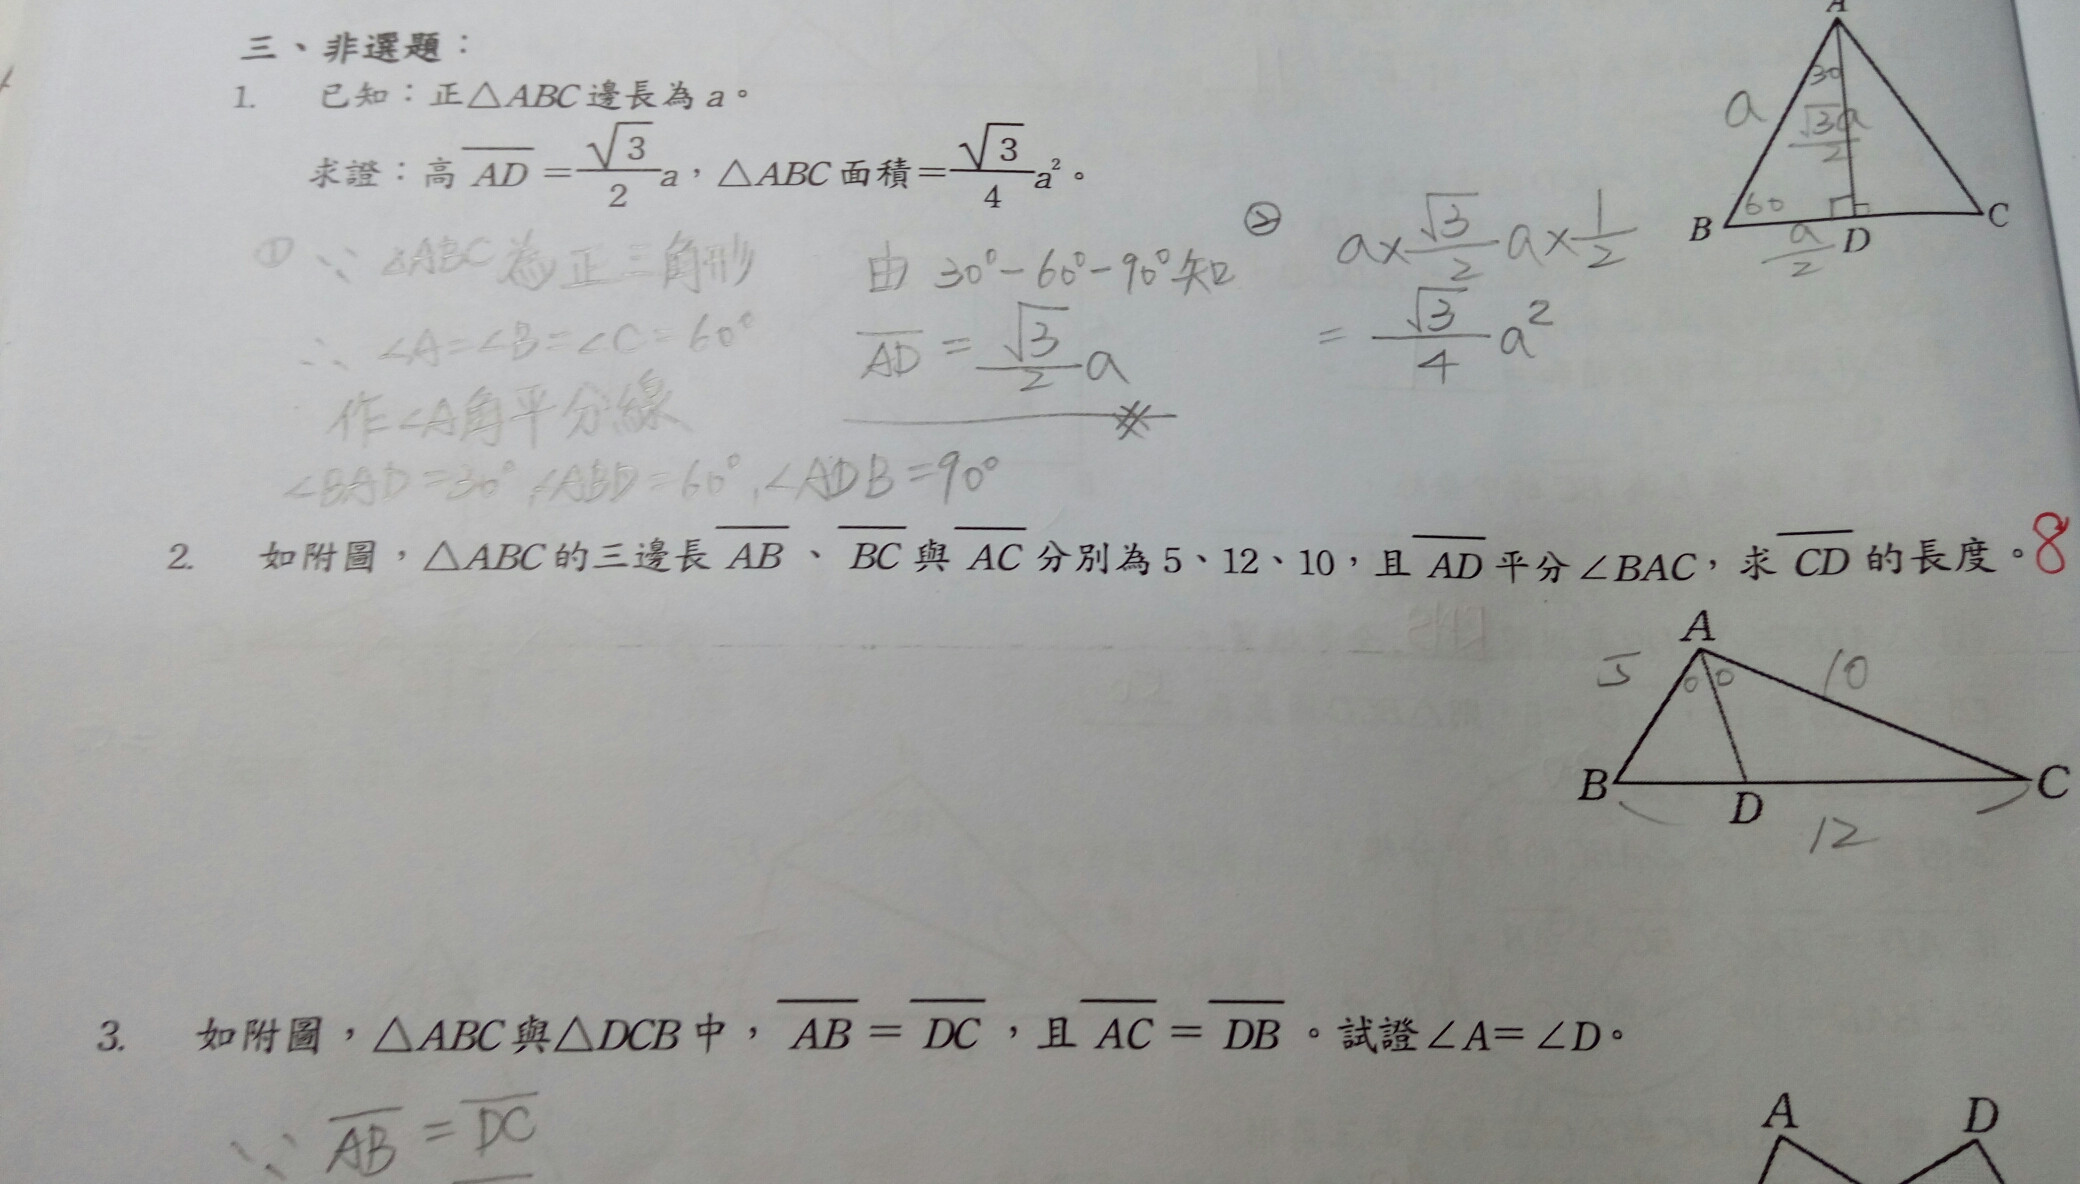 三、非選題：
1. 已知：正△ABC邊長為a。
求證：高 AD = √3/2 a，△ABC面積=√3/4 a²。
① ∵ △ABC為正三角形
∴ ∠A=∠B=∠C=60°
作∠A角平分線
∠BAD=30°,∠ABD=60°,∠ADB=90°
由 30°-60°-90°知
AD = √3/2 a
② a×√3/2 a×1/2
= √3/4 a²
A
30
a
√3a/2
B
60
a/2
D
C
2. 如附圖，△ABC的三邊長 AB、BC與 AC 分別為5、12、10，且 AD 平分∠BAC，求 CD 的長度。8
A
5
10
B
D
C
12
3. 如附圖，△ABC與△DCB中，AB = DC，且 AC = DB。試證∠A=∠D。
∵ AB = DC
A D